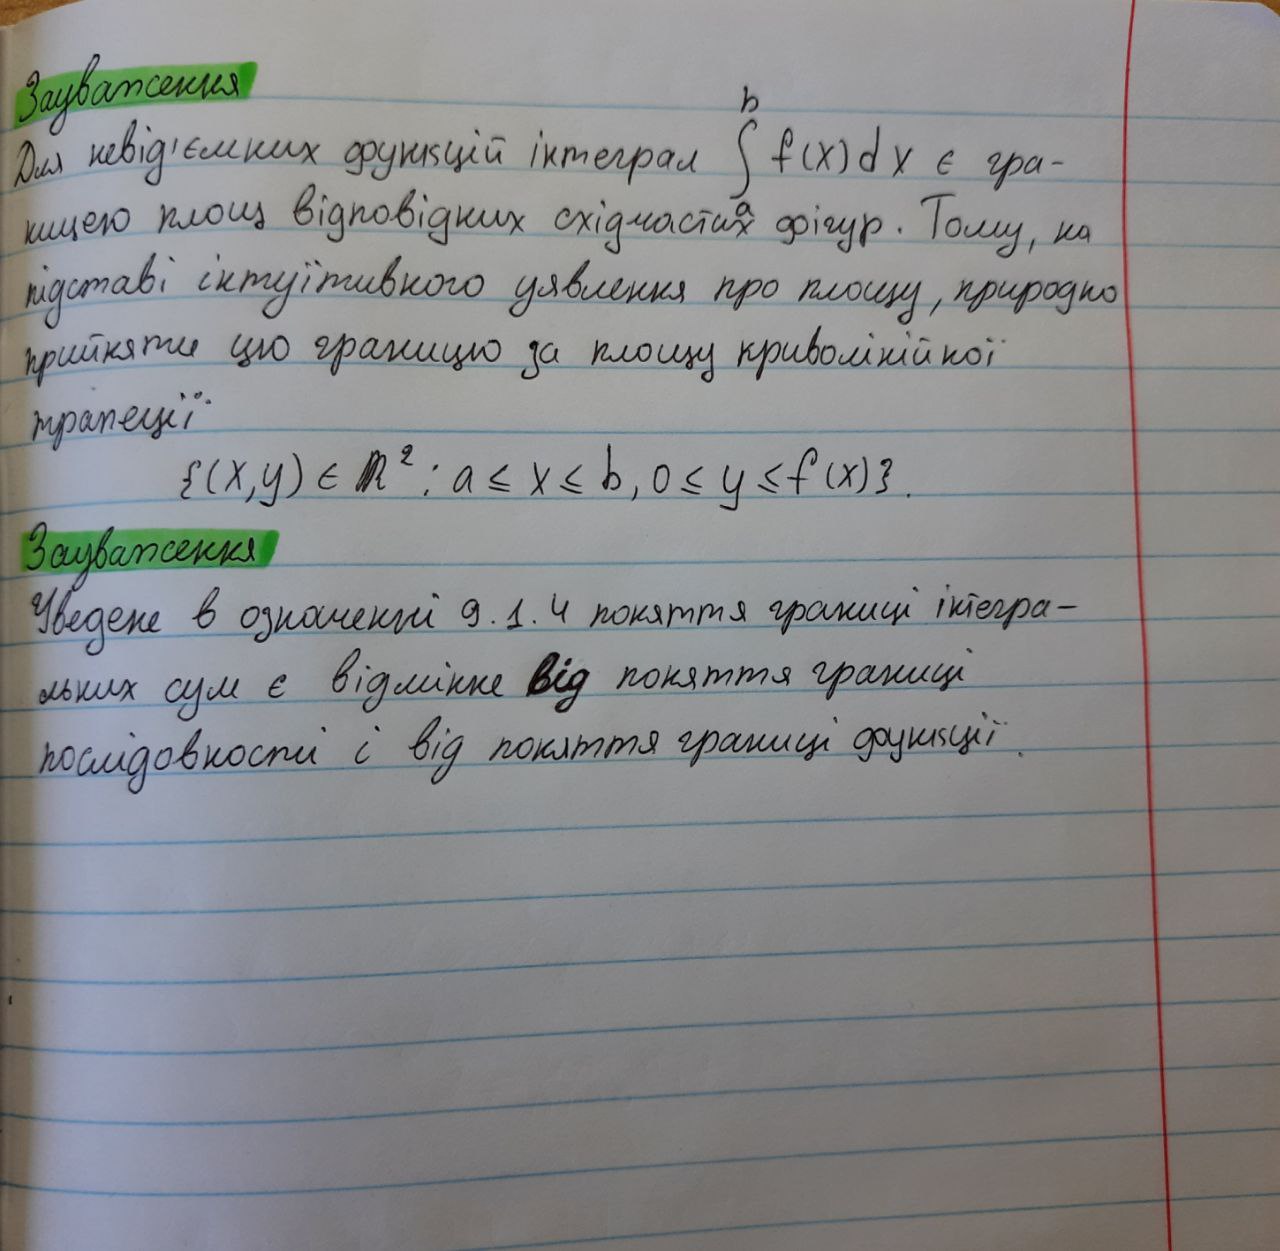 Зауваження
Для невід'ємних функцій інтеграл ∫ₐᵇ f(x)dx є гра-
ницею площ відповідних східчастих фігур. Тому, на
підставі інтуїтивного уявлення про площу, природно
прийняти цю границю за площу криволінійної
трапеції
{(x,y) ∈ R²: a ≤ x ≤ b, 0 ≤ y ≤ f(x)}.
Зауваження
Уведене в означенні 9.1.4 поняття границі інтегра-
льних сум є відмінне від поняття границі
послідовності і від поняття границі функції.